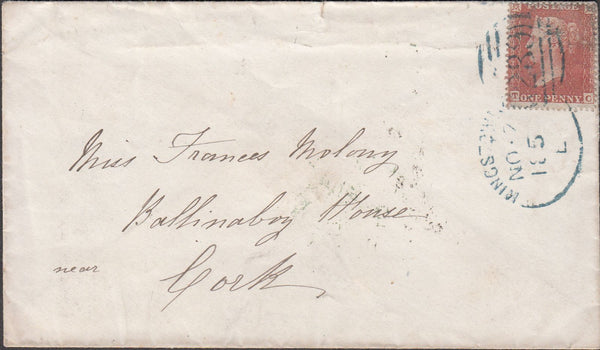 POSTAGE
ONE PENNY
C
KINGS
NO
185
L
Miss Frances Molony
Ballinaboy House
near
Cork